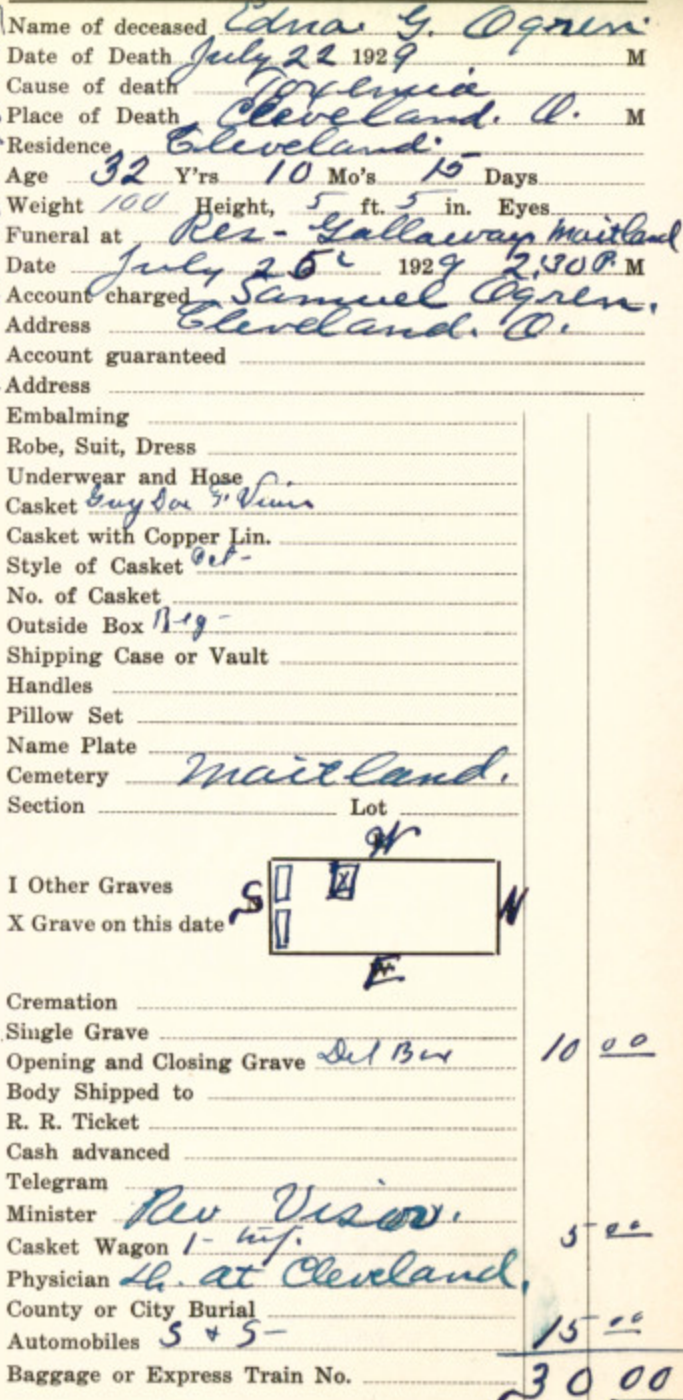 Name of deceased Edna G. Ogren
Date of Death July 22 1929 M
Cause of death Toxemia
Place of Death Cleveland. O. M
Residence Cleveland.
Age 32 Y'rs 10 Mo's 15 Days
Weight 100 Height, 5 ft. 5 in. Eyes
Funeral at Res - Gallaway Maitland
Date July 25 1929 2,30 P. M
Account charged Samuel Ogren.
Address Cleveland. O.
Account guaranteed
Address
Embalming
Robe, Suit, Dress
Underwear and Hose
Casket
Casket with Copper Lin.
Style of Casket Oct-
No. of Casket
Outside Box Reg-
Shipping Case or Vault
Handles
Pillow Set
Name Plate
Cemetery Maitland.
Section Lot
W
I Other Graves
S X N
X Grave on this date
E
Cremation
Single Grave
Opening and Closing Grave Del Box 10 00
Body Shipped to
R. R. Ticket
Cash advanced
Telegram
Minister Rev Visor.
Casket Wagon 1- 5 00
Physician at Cleveland.
County or City Burial
Automobiles S + S- 15 00
Baggage or Express Train No. 30 00